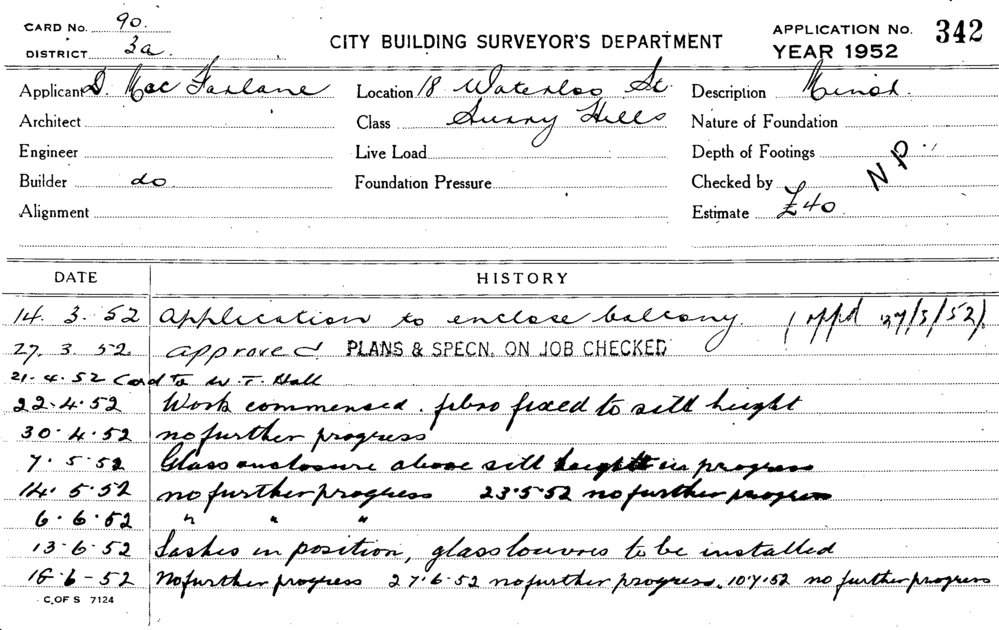 CARD No. 90.
DISTRICT 3a.
CITY BUILDING SURVEYOR'S DEPARTMENT
APPLICATION No. 342
YEAR 1952
Applicant D. MacFarlane Location 18 Waterloo St. Description Minor.
Architect Class Surry Hills Nature of Foundation
Engineer Live Load Depth of Footings
Builder do Foundation Pressure Checked by NP
Alignment Estimate £40
DATE HISTORY
14. 3. 52 Application to enclose balcony (appd 27/3/52).
27. 3. 52. approved PLANS & SPECN. ON JOB CHECKED
21-4-52 Card to W. T. Hall
22.4.52 Work commenced. fibro fixed to sill height
30.4.52 no further progress
7.5.52 Glass enclosure above sill height in progress
14.5.52 no further progress 23.5.52 no further progress
6.6.52 " " "
13.6.52 Sashes in position, glass louvres to be installed
-6-52 No further progress 27.6.52 no further progress. 10.7.52 no further progress
C. OF S 7124